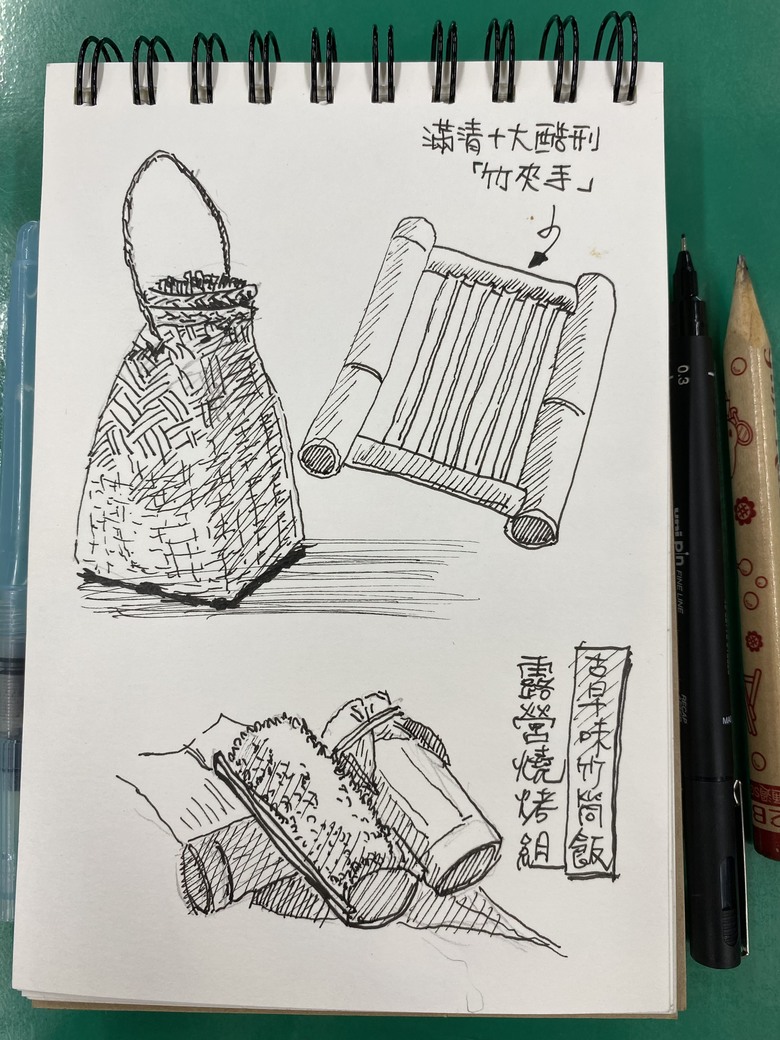 滿清十大酷刑
「竹夾手」
古早味竹筒飯
露營燒烤組
0.3
uni pin
FINE LINE
2B